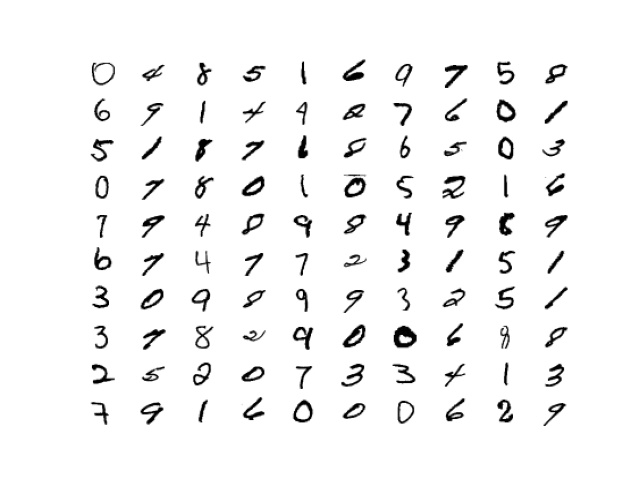 0 4 8 5 1 6 9 7 5 8
6 9 1 4 9 2 7 6 0 1
5 1 8 7 6 8 6 5 0 3
0 7 8 0 1 0 5 2 1 6
7 9 4 8 9 8 4 9 8 9
6 7 4 7 7 2 3 1 5 1
3 0 9 8 9 9 3 2 5 1
3 7 8 2 9 0 0 6 8 8
2 5 2 0 7 3 3 4 1 3
7 9 1 6 0 0 0 6 2 9